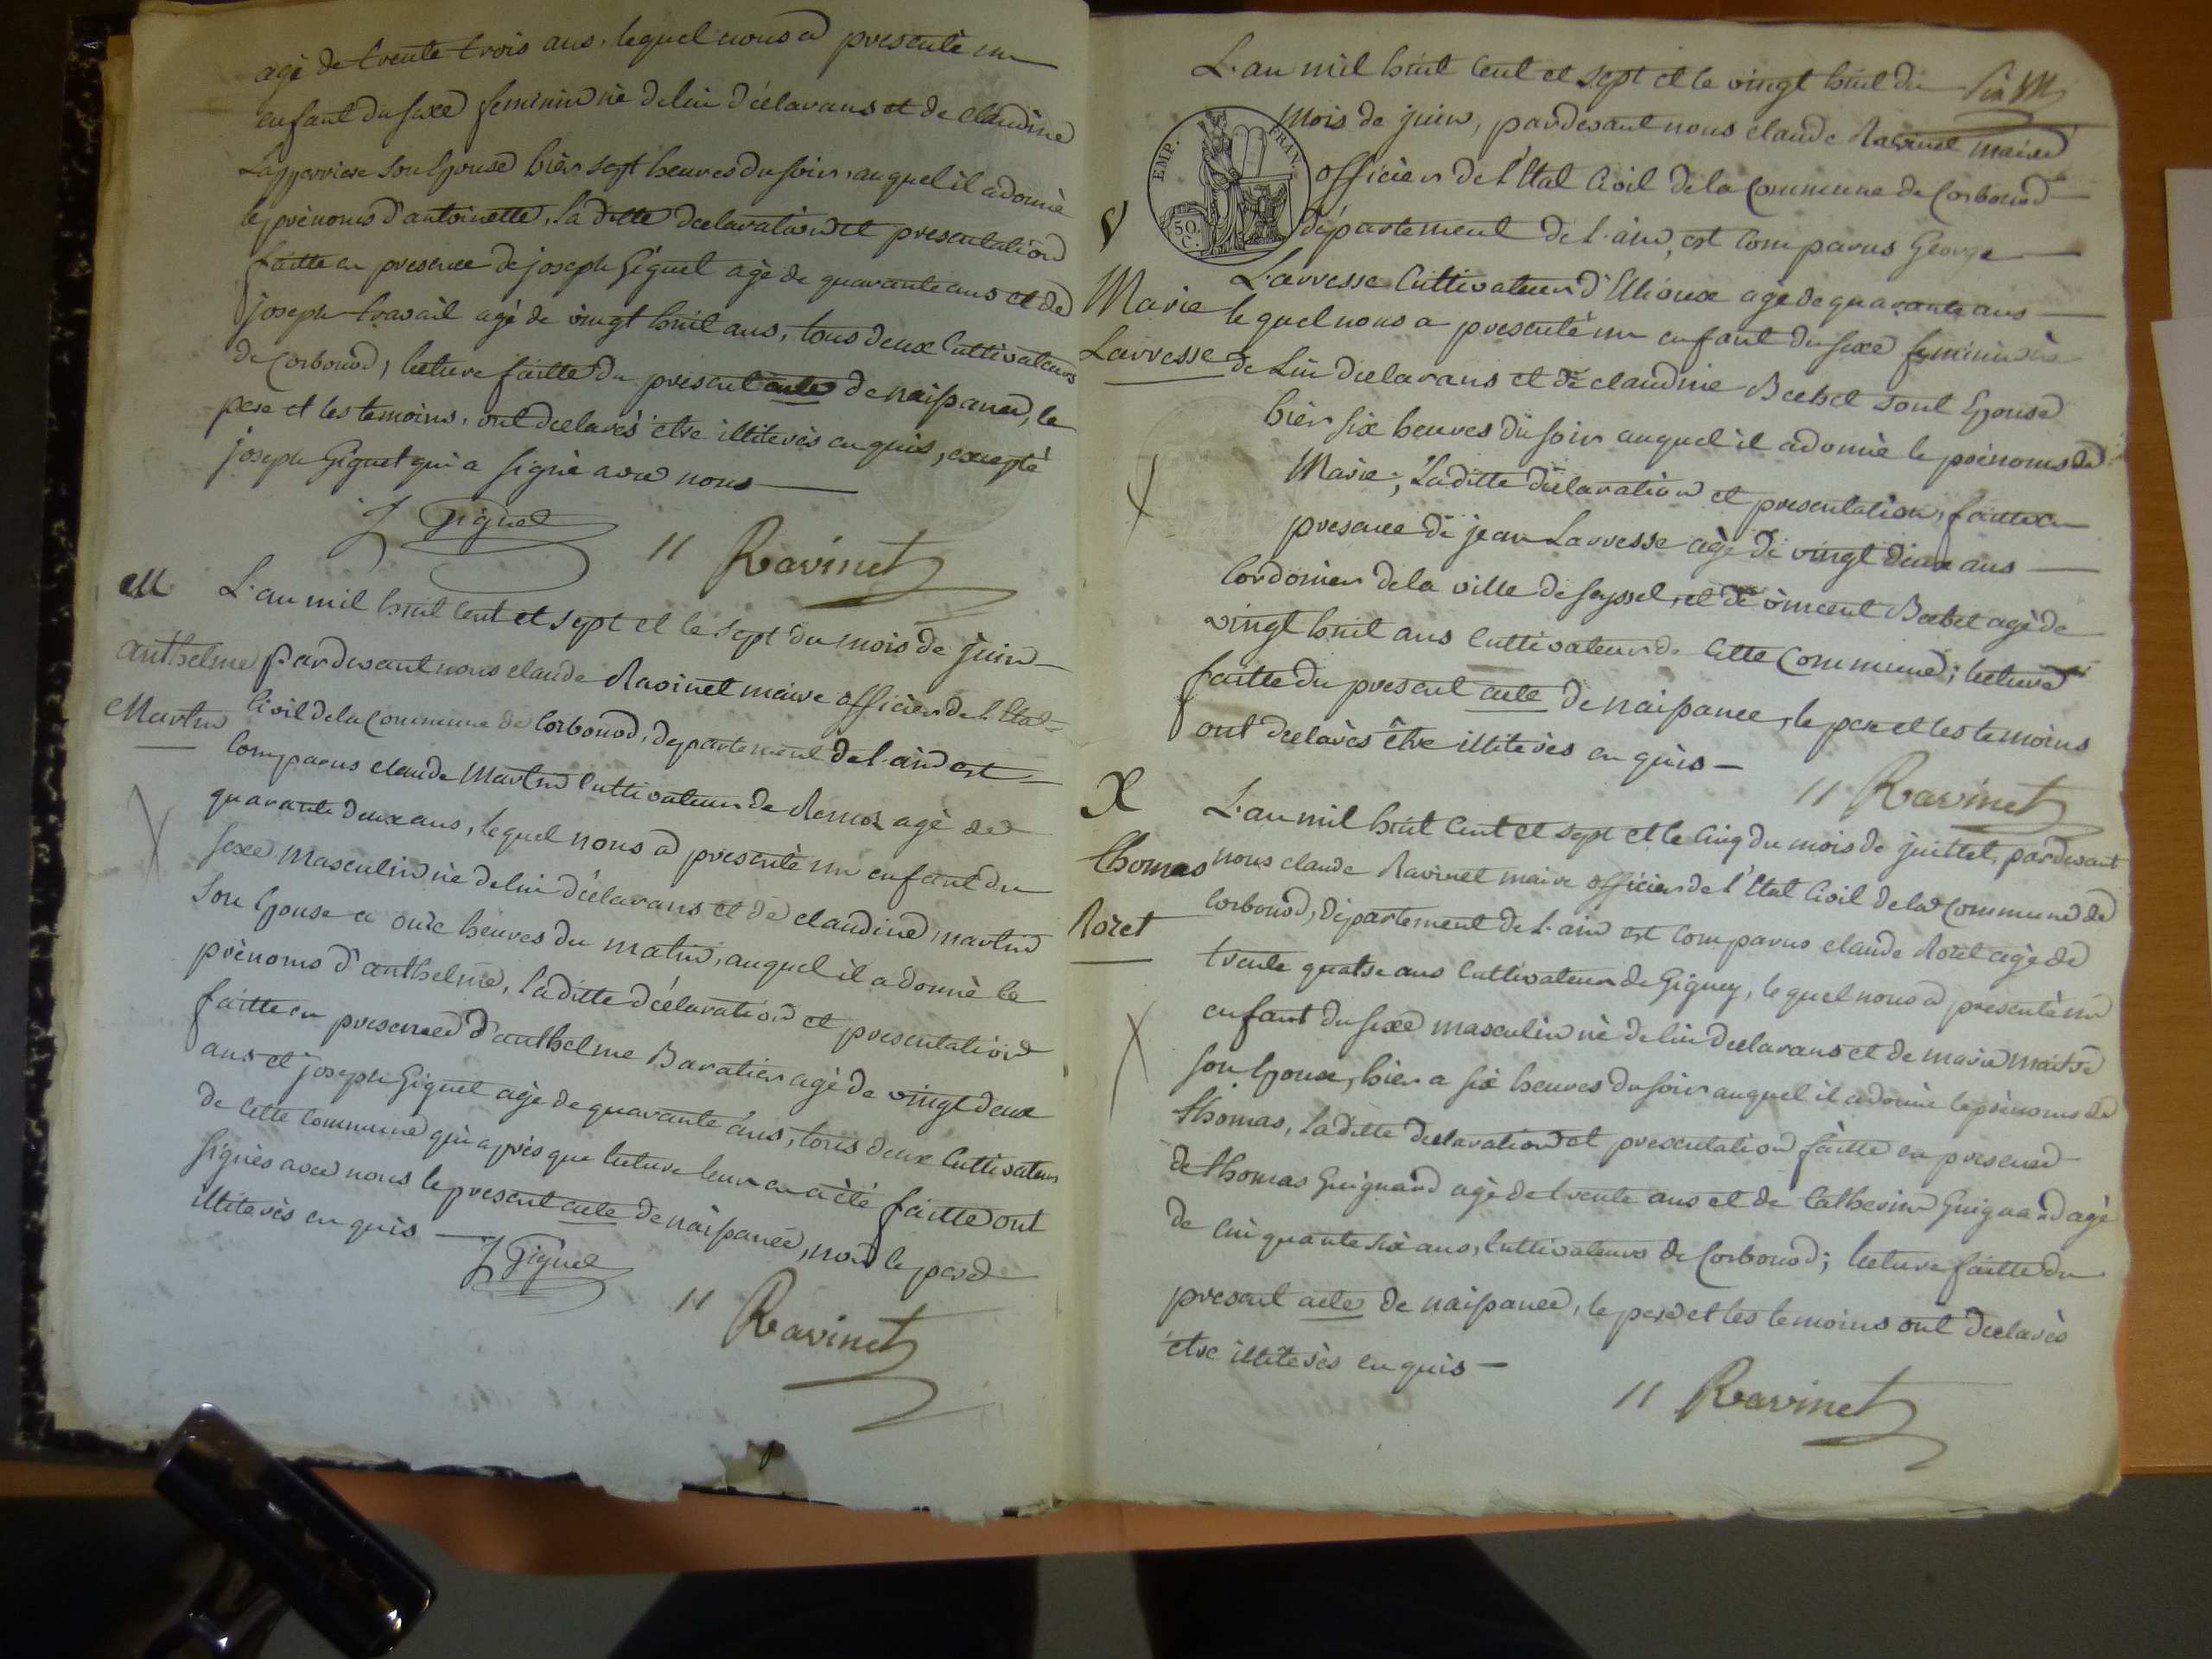 agé de trente trois ans, lequel nous a presenté un
enfant du sexe feminin né de lui déclarans et de claudine
Lapperriere son Epouse hièr sept heures du soir, auquel il a donné
le prénoms d'antoinette, la ditte declaration et presentation
faitte en presence de joseph Giguet agé de quarante ans et de
joseph travail agé de vingt huit ans, tous deux Cultivateurs
de Corbonod, lecture faitte du présent acte de naissance, le
pere et les temoins, ont declarés etre illiterés enquis, excepté
joseph Giguet qui a signé avec nous
J Giguet
Ravinet
M
L'an mil huit cent et sept et le sept du mois de juin
anthelme
Martin
pardevant nous claude Ravinet maire officier de l'Etat
Civil de la Commune de Corbonod, departement de l'ain est
Comparus claude Martin Cultivateur de Remoz agé de
quarante deux ans, lequel nous a presenté un enfant du
sexe masculin né de lui déclarans et de claudine martin
son Epouse a onze heures du matin, auquel il a donné le
prénoms d'anthelme, la ditte déclaration et presentation
faitte en presence d'anthelme Baratier agé de vingt deux
ans et joseph Giguet agé de quarante ans, tous deux Cultivateurs
de cette commune qui après que lecture leur en a été faitte ont
signés avec nous le present acte de naissance, non le pere
illiterés enquis
J Giguet
Ravinet
L'an mil huit cent et sept et le vingt huit du
mois de juin, pardevant nous claude Ravinet maire
EMP. FRAN.
50 C.
officier de l'Etat Civil de la Commune de Corbonod
département de l'ain, est Comparus George
Larvesse Cultivateur d'Etioux agé de quarante ans
Marie
Larvesse
lequel nous a presenté un enfant du sexe feminin né
de lui declarans et de claudine Berbet sont Epouse
hièr six heures du soir auquel il a donné le prénoms de
Marie, La ditte déclaration et presentation, faitte en
presence de jean Larvesse agé de vingt deux ans
Cordonier de la ville de seyssel, et de vincent Berbet agé de
vingt huit ans Cultivateur de cette Commune; lecture
faitte du present acte de naissance, le pere et les temoins
ont declarés être illiterés enquis
Ravinet
X
L'an mil huit cent et sept et le cinq du mois de juillet, pardevant
Thomas
Rozet
nous claude Ravinet maire officier de l'Etat Civil de la Commune de
Corbonod, département de l'ain est Comparus claude Rozet agé de
trente quatre ans Cultivateur de Gigney, lequel nous a presenté un
enfant du sexe masculin né de lui declarans et de marie maitre
son Epouse, hier a six heures du soir auquel il a donné le prénoms de
thomas, la ditte declaration et presentation faitte en presence
de thomas Guignard agé de trente ans et de Catherin Guignard agé
de cinquante six ans, Cultivateurs de Corbonod; lecture faitte du
present acte de naissance, le pere et les temoins ont declarés
être illiterés enquis
Ravinet